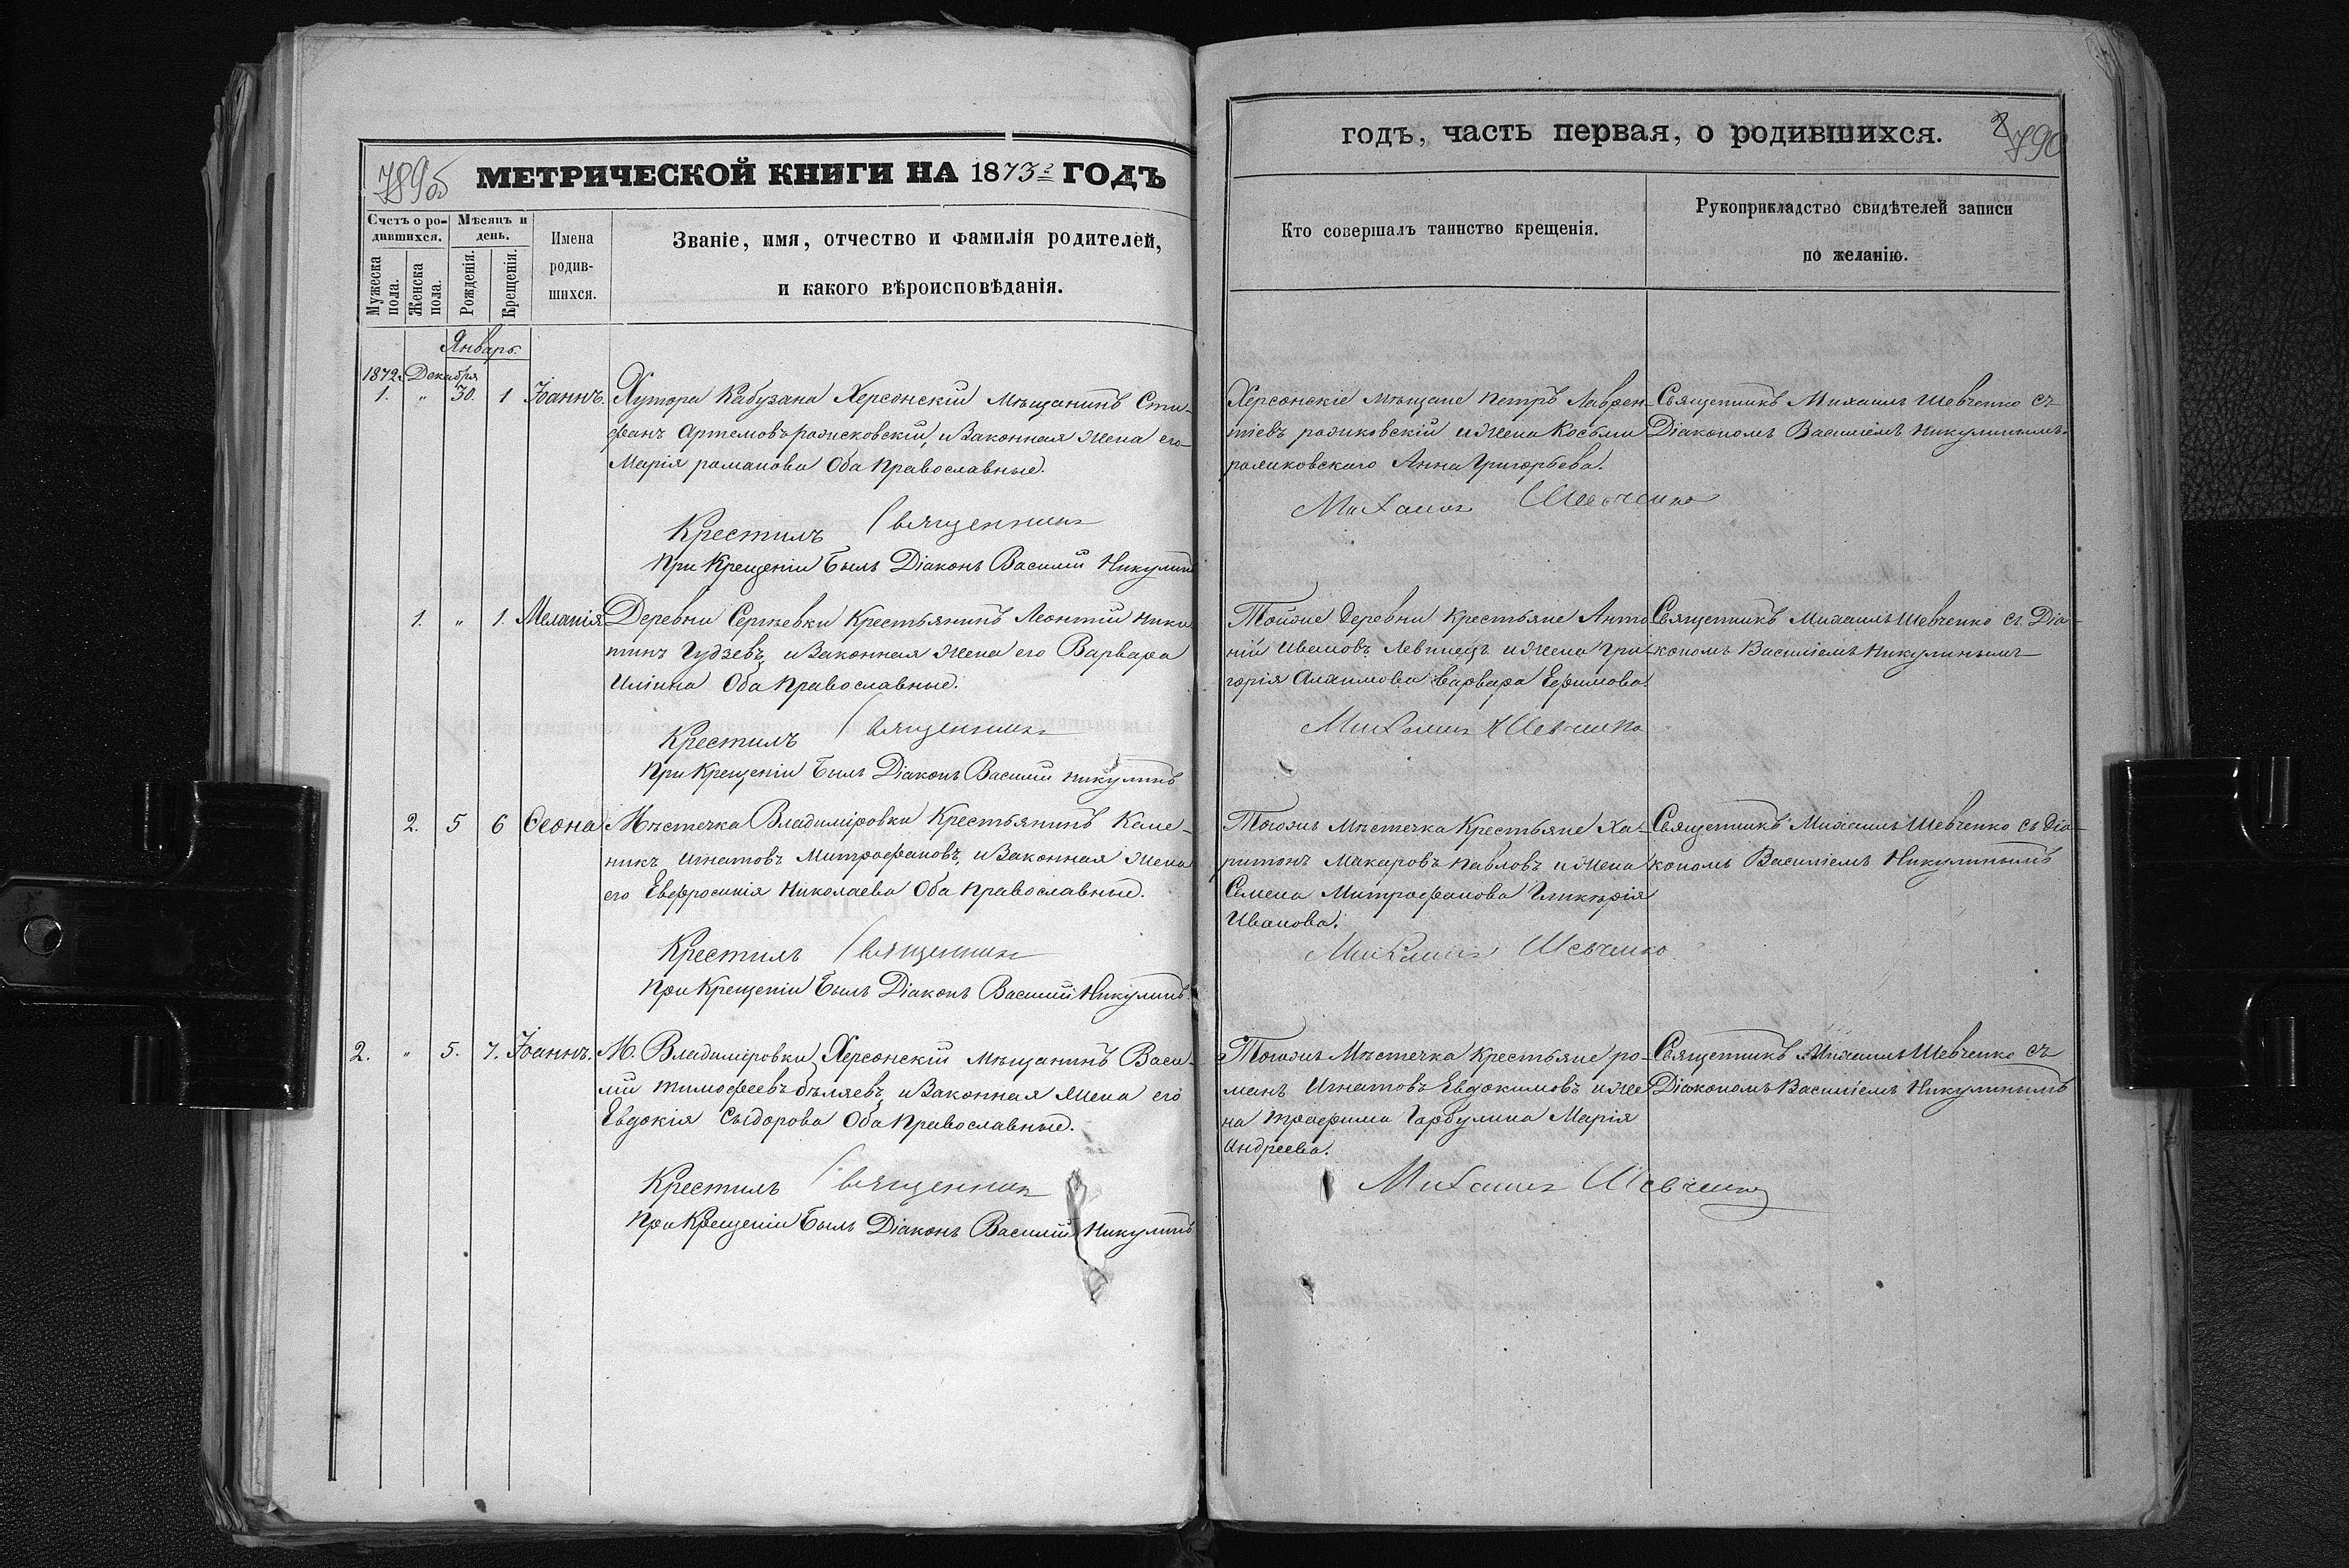 789об
МЕТРИЧЕСКОЙ КНИГИ НА 1873й ГОДЪ
Счетъ о ро-
дившихся.
Мѣсяцъ и
день.
Мужеска
пола.
Женска
пола.
Рожденія.
Крещенія.
Имена
родив-
шихся.
Званіе, имя, отчество и фамилія родителей,
и какого вѣроисповѣданія.
Январь.
1872г. Декабря
1. " 30. 1 Іоаннъ. Хутора Кабузана Херсонскій Мѣщанинъ Сте-
фанъ Артемовъ и Законная Жена его
Марія романова Оба Православные.
Крестилъ Священникъ
При Крещеніи Былъ Діаконъ Василій Никулинъ
1. " 1. Меланія Деревни Сергѣевки Крестьянинъ Леонтій Ники
тинъ Гудзевъ, и Законная Жена его Варвара
Иліина Оба Православные.
Крестилъ Священникъ
При Крещеніи Былъ Діаконъ Василій Никулинъ
2. 5 6 Ѳеона Мѣстечка Владиміровки Крестьянинъ Каме-
никъ Игнатовъ Митрофановъ, и Законная Жена
его Евфросинія Николаева Оба Православные.
Крестилъ Священникъ
При Крещеніи Былъ Діаконъ Василій Никулинъ.
2. " 5. 7. Іоаннъ. М. Владиміровки, Херсонскій Мѣщанинъ Васи-
лій Тимофеевъ бѣляевъ, и Законная Жена его
Евдокія Сыдорова Оба Православные.
Крестилъ Священникъ
При Крещеніи Былъ Діаконъ Василій Никулинъ
годъ, часть первая, о родившихся.
2
790
Кто совершалъ таинство крещенія.
Рукоприкладство свидѣтелей записи
по желанію.
Херсонскіе Мѣщане Петръ Лаврен-
тіевъ и Жена Косьмы
Анна Григорьева.
Священникъ Михаилъ Шевченко съ
Діакономъ Василіемъ Никулинымъ.
Михаилъ Шевченко
Тойже Деревни Крестьяне Анто
ній Ивановъ Левинецъ и Жена Гри-
горія Варвара Ефимова.
Священникъ Михаилъ Шевченко съ Діа-
кономъ Василіемъ Никулинымъ
Михаилъ Шевченко
Тогожъ Мѣстечка Крестьяне Ха-
ритонъ Макаровъ Павловъ и Жена
Семена Митрофанова Гликерія
Иванова.
Священникъ Михаилъ Шевченко съ Діа-
кономъ Василіемъ Никулинымъ
Михаилъ Шевченко
Тогожъ Мѣстечка Крестьяне ро-
манъ Игнатовъ Евдокимовъ и Же
на Трофима Гарбузина Марія
Андреева.
Священникъ Михаилъ Шевченко съ
Діакономъ Василіемъ Никулинымъ
Михаилъ Шевченко